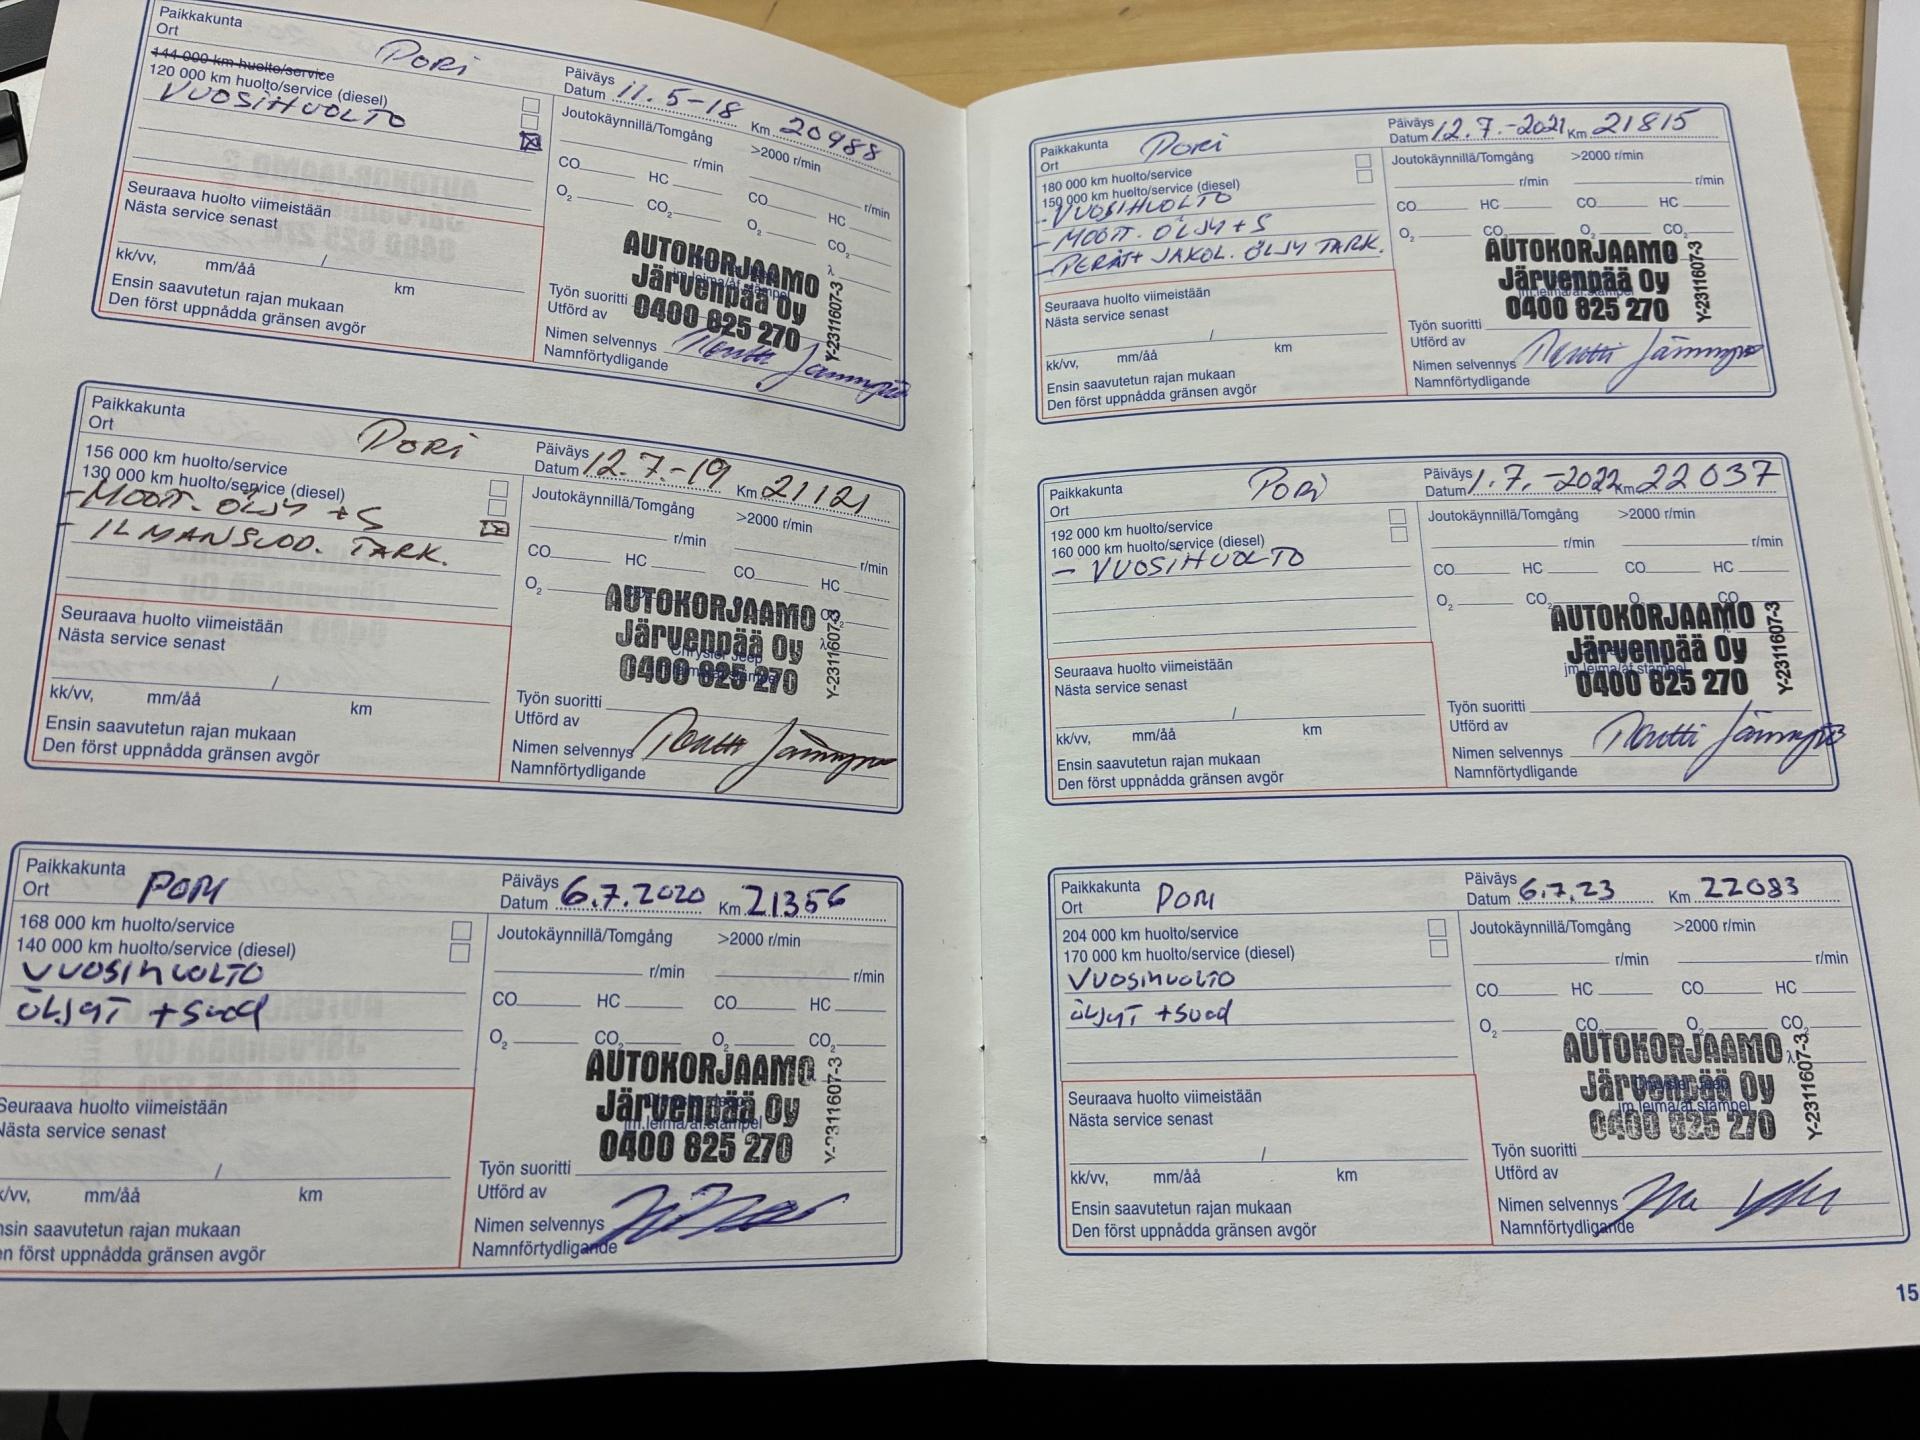 Paikkakunta
Ort
PORI
Päiväys
Datum 11.5-18 Km 20988
144 000 km huolto/service
120 000 km huolto/service (diesel)
VUOSIHUOLTO
Joutokäynnillä/Tomgång >2000 r/min
r/min r/min
CO HC CO HC
O2 CO2 O2 CO2
λ
Seuraava huolto viimeistään
Nästa service senast
/
kk/vv, mm/åå km
Ensin saavutetun rajan mukaan
Den först uppnådda gränsen avgör
AUTOKORJAAMO
Järvenpää Oy
0400 825 270
Y-2311607-3
jm.leima/af.stämpel
Työn suoritti
Utförd av
Nimen selvennys
Namnförtydligande
Paikkakunta
Ort
PORI
Päiväys
Datum 12.7.-19 Km 21121
156 000 km huolto/service
130 000 km huolto/service (diesel)
- MOOT. ÖLJY + S
- ILMANSUOD. TARK.
Joutokäynnillä/Tomgång >2000 r/min
r/min r/min
CO HC CO HC
O2
λ
Seuraava huolto viimeistään
Nästa service senast
/
kk/vv, mm/åå km
Ensin saavutetun rajan mukaan
Den först uppnådda gränsen avgör
AUTOKORJAAMO
Järvenpää Oy
0400 825 270
Y-2311607-3
Chrysler Jeep
Työn suoritti
Utförd av
Nimen selvennys
Namnförtydligande
Paikkakunta
Ort
PORI
Päiväys
Datum 6.7.2020 Km 21356
168 000 km huolto/service
140 000 km huolto/service (diesel)
VUOSIHUOLTO
ÖLJYT + SUOD
Joutokäynnillä/Tomgång >2000 r/min
r/min r/min
CO HC CO HC
O2 CO2 O2 CO2
Seuraava huolto viimeistään
Nästa service senast
/
k/vv, mm/åå km
nsin saavutetun rajan mukaan
n först uppnådda gränsen avgör
AUTOKORJAAMO
Järvenpää Oy
0400 825 270
Y-2311607-3
jm.leima/af.stämpel
Työn suoritti
Utförd av
Nimen selvennys
Namnförtydligande
Paikkakunta
Ort
PORI
Päiväys
Datum 12.7.-2021 Km 21815
180 000 km huolto/service
150 000 km huolto/service (diesel)
- VUOSIHUOLTO
- MOOT. ÖLJY + S
- PERÄ++ JAKOL. ÖLJY TARK.
Joutokäynnillä/Tomgång >2000 r/min
r/min r/min
CO HC CO HC
O2 CO2 O2 CO2
Seuraava huolto viimeistään
Nästa service senast
/
kk/vv, mm/åå km
Ensin saavutetun rajan mukaan
Den först uppnådda gränsen avgör
AUTOKORJAAMO
Järvenpää Oy
0400 825 270
Y-2311607-3
jm.leima/af.stämpel
Työn suoritti
Utförd av
Nimen selvennys
Namnförtydligande
Paikkakunta
Ort
PORI
Päiväys
Datum 1.7.-2022 Km 22037
192 000 km huolto/service
160 000 km huolto/service (diesel)
- VUOSIHUOLTO
Joutokäynnillä/Tomgång >2000 r/min
r/min r/min
CO HC CO HC
O2 CO2 O2 CO2
Seuraava huolto viimeistään
Nästa service senast
/
kk/vv, mm/åå km
Ensin saavutetun rajan mukaan
Den först uppnådda gränsen avgör
AUTOKORJAAMO
Järvenpää Oy
0400 825 270
Y-2311607-3
jm.leima/af.stämpel
Työn suoritti
Utförd av
Nimen selvennys
Namnförtydligande
Paikkakunta
Ort
PORI
Päiväys
Datum 6.7.23 Km 22083
204 000 km huolto/service
170 000 km huolto/service (diesel)
VUOSIHUOLTO
ÖLJYT + SUOD
Joutokäynnillä/Tomgång >2000 r/min
r/min r/min
CO HC CO HC
O2 CO2 O2 CO2
λ
Seuraava huolto viimeistään
Nästa service senast
/
kk/vv, mm/åå km
Ensin saavutetun rajan mukaan
Den först uppnådda gränsen avgör
AUTOKORJAAMO
Järvenpää Oy
0400 825 270
Y-2311607-3
Chrysler Jeep
jm.leima/af.stämpel
Työn suoritti
Utförd av
Nimen selvennys
Namnförtydligande
15